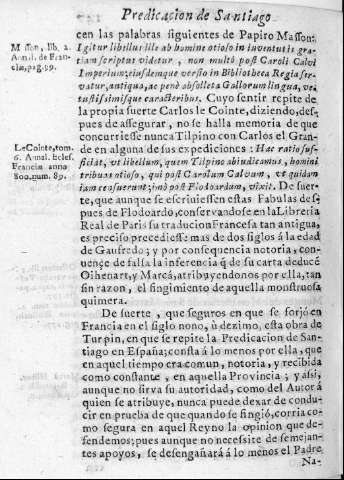 Predicacion de Santiago
cen las palabras siguientes de Papiro Masson:
Masson, lib. 2.
Annal. de Fran-
ciæ, pag. 99.
Igitur libellus ille ab homine otioso in iuventutis gra-
tiam scriptus videtur, non multò post Caroli Calvi
Imperium; eiusdemque versio in Bibliotheca Regia ser-
vatur, antiqua, ac penè obsolleta Gallorum lingua, ve-
tustissimisque caracteribus. Cuyo sentir repite de
la propia suerte Carlos le Cointe, diziendo, des-
pues de assegurar, no se halla memoria de que
concurriesse nunca Tilpino con Carlos el Gran-
LeCointe, tom.
6. Annal. Eclesf.
Francia anno
800. num. 89.
de en alguna de sus expediciones: Hæc ratio suf-
ficiat, vt libellum, quem Tilpino abiudicamus, homini
tribuas otioso, qui post Carolum Calvum, et quidam
iam censuerunt; imò post Flodoardum, vixit. De suer-
te, que aunque se escriviessen estas Fabulas des-
pues de Flodoardo, conservandose en la Libreria
Real de Paris su traducion Francesa tan antigua,
es preciso precediesse mas de dos siglos à la edad
de Gaufredo; y por consequencia notoria, con-
vence de falsa la inferencia q̃ de su carta deducẽ
Oihenart, y Marcá, atribuyendonos por ella, tan
sin razon, el fingimiento de aquella monstruosa
quimera.
De suerte, que seguros en que se forjò en
Francia en el siglo nono, ù dezimo, esta obra de
Turpin, en que se repite la Predicacion de San-
tiago en España; consta à lo menos por ella, que
en aquel tiempo era comun, notoria, y recibida
como constante, en aquella Provincia; y assi,
aunque no sirva su autoridad, como del Autor à
quien se atribuye, nunca puede dexar de condu-
cir en prueba de que quando se fingiò, corria co-
mo segura en aquel Reyno la opinion que de-
fendemos; pues aunque no necessite de semejan-
tes apoyos, se desengañarà à lo menos el Padre
Na-